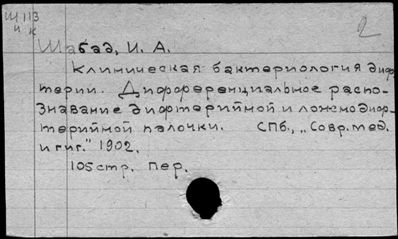 Ш 113
и к
2
Шабад, И. А.
Клиническая бактериология диф-
терии. Дифференциальное распо-
знавание дифтерийной и ложнодиф-
терийной палочки. СПб., „Совр. мед.
и гиг." 1902.
105 стр. Пер.